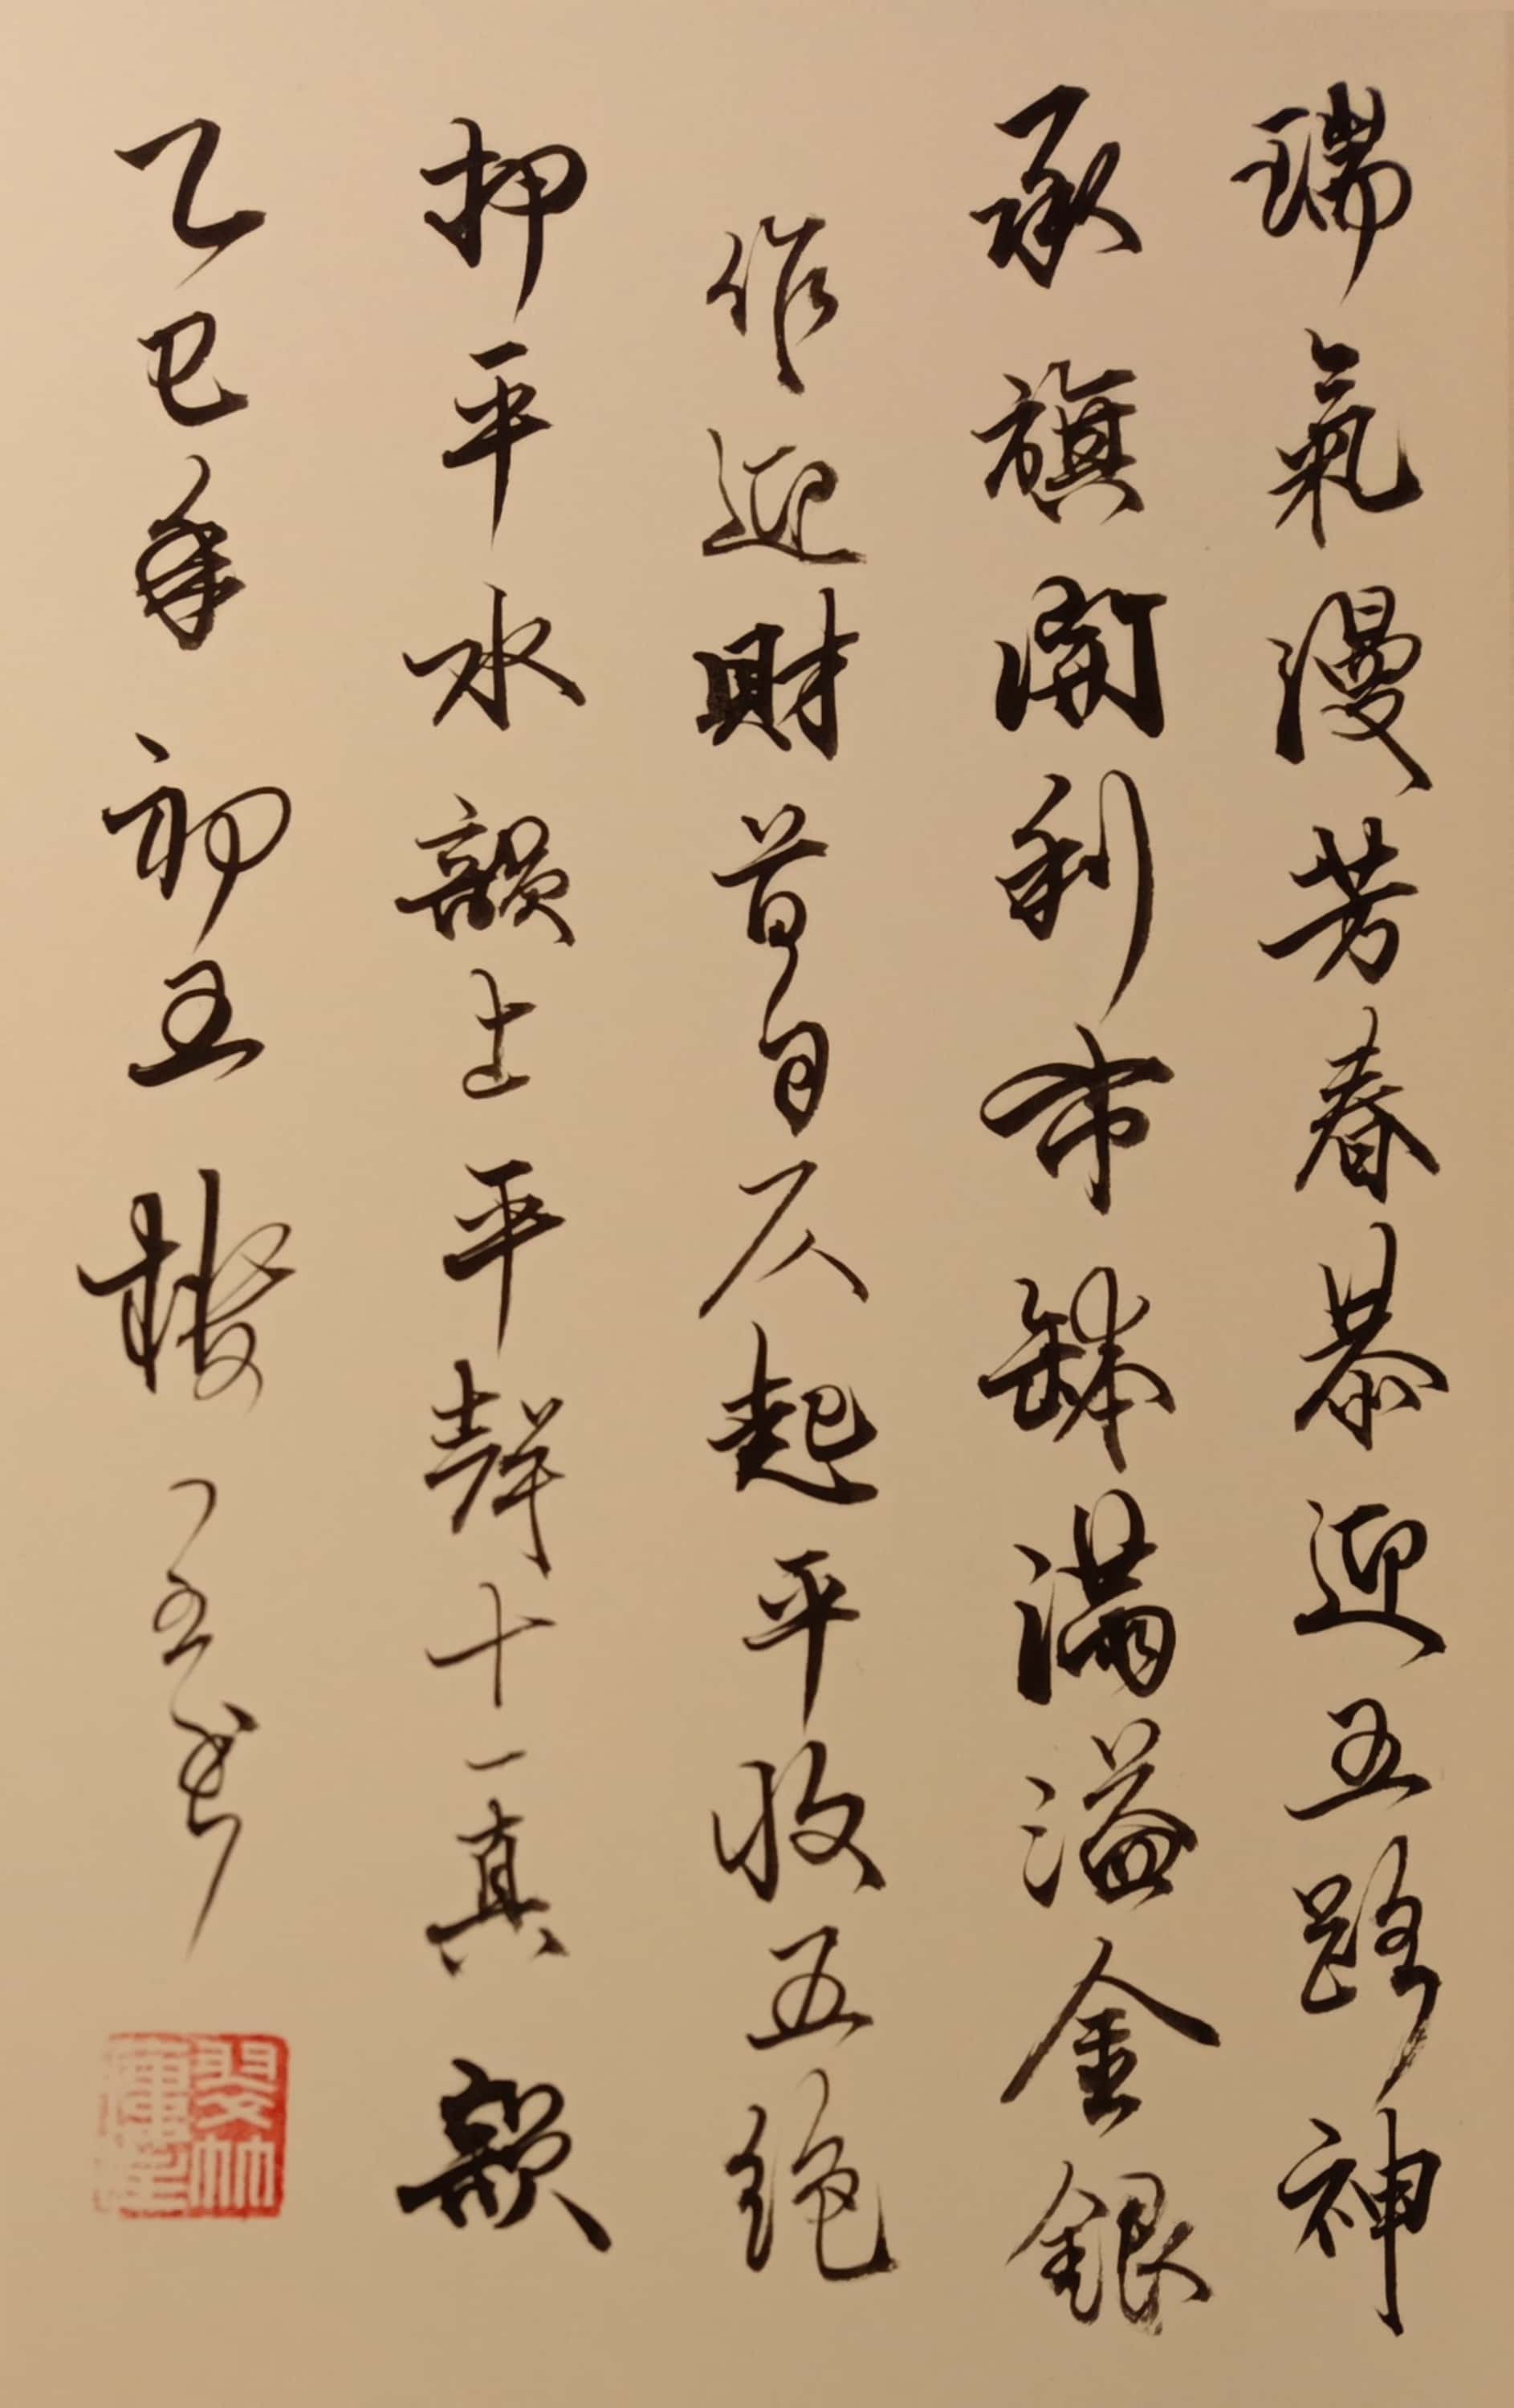 瑞氣漫芳春恭迎五路神
承旗開利市缽滿溢金銀
作迎財首日仄起平收五绝
押平水韻上平聲十一真韻
乙巳年初五